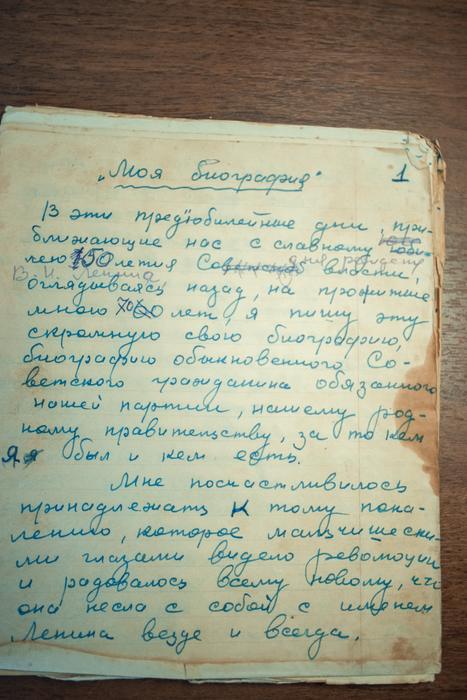 „Моя биография" 1
В эти предъюбилейные дни, при-
ближающие нас с славному юби-
лею 150 летия Советской власти,
дня рождения
В. И. Ленина,
оглядываясь назад, на прожитые
мною 70 лет, я пишу эту
скромную свою биографию,
биографию обыкновенного Со-
ветского гражданина обязанного
нашей партии, нашему род-
ному правительству, за то кем
я был и кем есть.
Мне посчастливилось
принадлежать к тому поко-
лению, которое мальчишески-
ми глазами видело революции
и радовалось всему новому, что
она несла с собой с именем
Ленина везде и всегда.